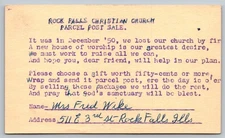 ROCK FALLS CHRISTIAN CHURCH
PARCEL POST SALE.
It was in December '50, we lost our church by fire
A new house of worship is our greatest desire,
We must work to raise all we can,
And hope you, dear friend, will help in our plan.
Please choose a gift worth fifty-cents or more,
Wrap and send it parcel post, are the day is o'er
By selling these packages we will do the rest,
And pray that God's sanctuary will be blest.
Name- Mrs Fred Wike
Address 511 E 3rd St- Rock Falls Ills